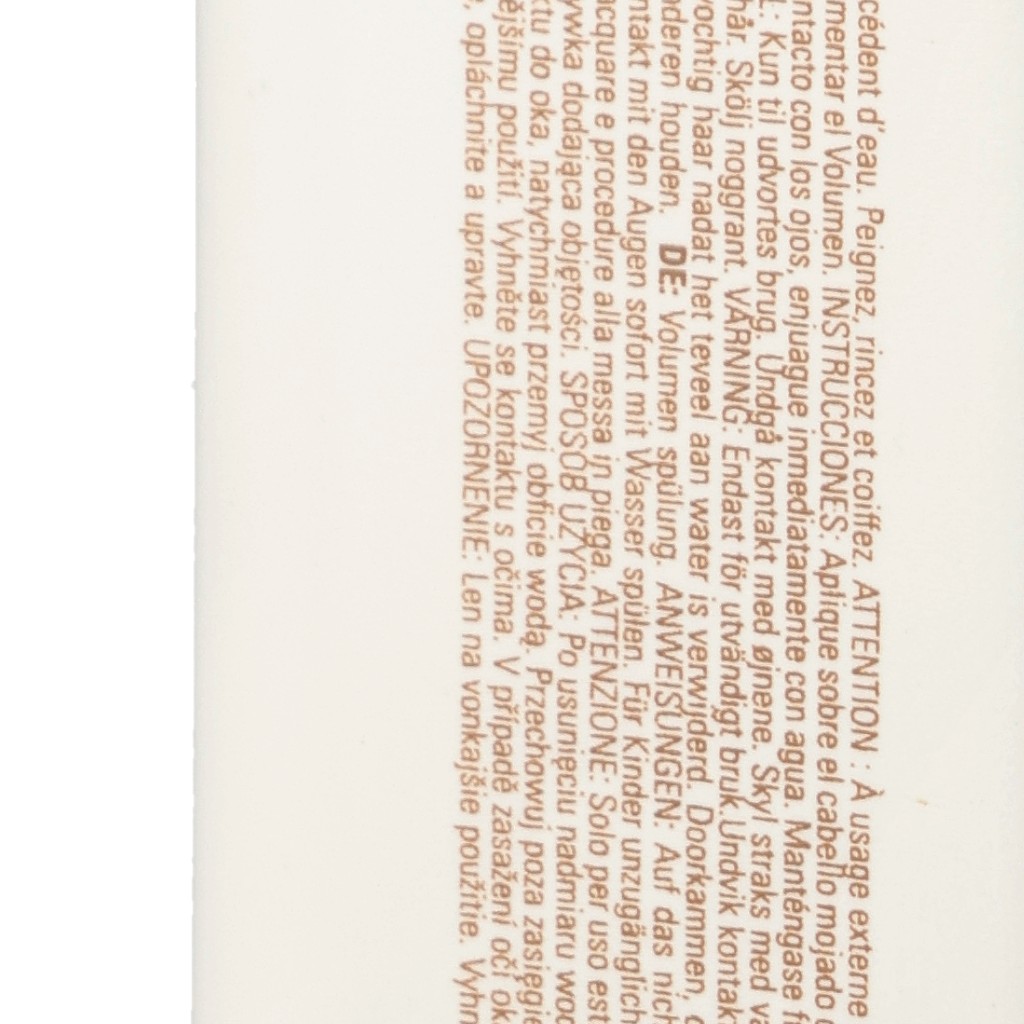 d'eau. Peignez, rincez et coiffez. ATTENTION : À usage externe
el Volumen. INSTRUCCIONES: Aplique sobre el cabello mojado
con los ojos, enjuague inmediatamente con agua. Manténgase
Kun til udvortes brug. Undgå kontakt med øjnene. Skyl straks med
hår. Skölj noggrant. VARNING: Endast för utvändigt bruk.Undvik
haar nadat het teveel aan water is verwijderd. Doorkammen,
houden. DE: Volumen spülung. ANWEISUNGEN: Auf das
mit den Augen sofort mit Wasser spülen. Für Kinder
e procedure alla messa in piega. ATTENZIONE: Solo per uso
dodająca objętości. SPOSÓB UŻYCIA: Po usunięciu nadmiaru
do oka, natychmiast przemyj obficie wodą. Przechowuj poza
použití. Vyhněte se kontaktu s očima. V případě zasažení očí
opláchnite a upravte. UPOZORNENIE: Len na vonkajšie použitie.